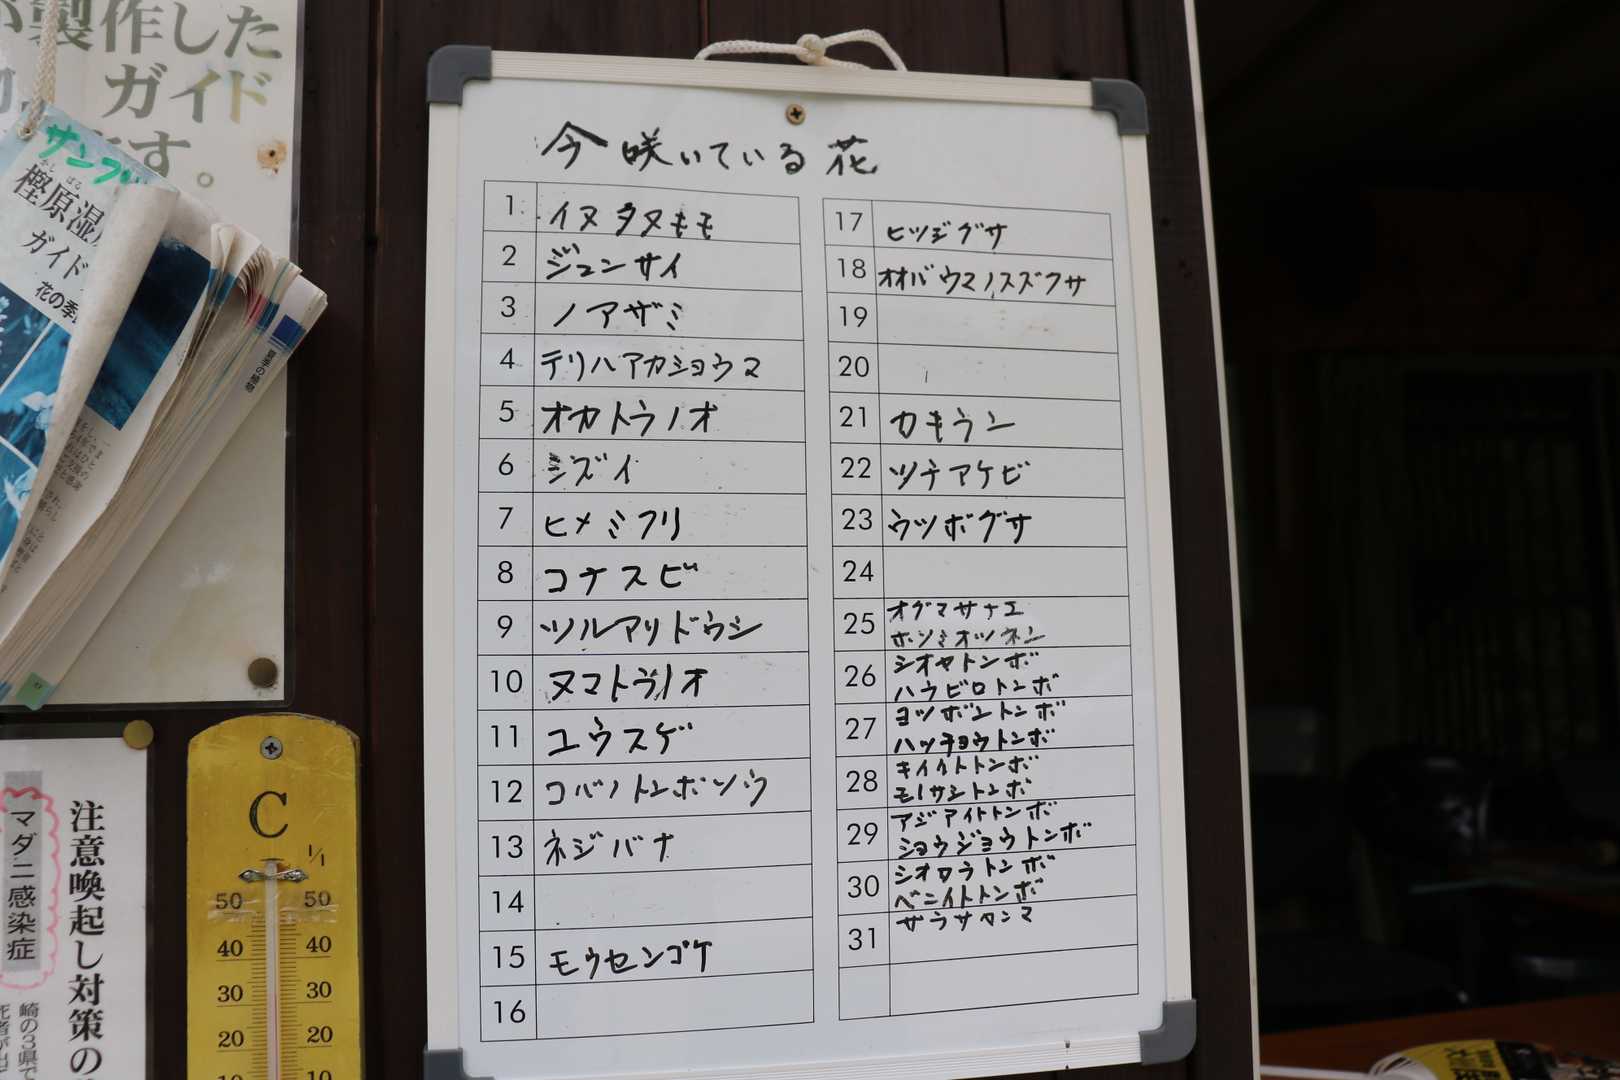 製作した
ガイド
す。
サンプル
かし ばる
樫原湿
ガイド
花の季
夏季の植物
注意喚起し対策の
マダニ感染症
崎の3県で
C
1/1
50 50
40 40
30 30
20 20
10 10
今咲いている花
1 イヌタヌキモ
2 ジュンサイ
3 ノアザミ
4 テリハアカショウマ
5 オカトラノオ
6 シズイ
7 ヒメミクリ
8 コナスビ
9 ツルアリドウシ
10 ヌマトラノオ
11 ユウスゲ
12 コバノトンボソウ
13 ネジバナ
14
15 モウセンゴケ
16
17 ヒツジグサ
18 オオバウマノスズクサ
19
20
21 カキラン
22 ツチアケビ
23 ウツボグサ
24
25 オグマサナエ
ホソミオツネン
26 シオヤトンボ
ハラビロトンボ
27 ヨツボシトンボ
ハッチョウトンボ
28 キイトトンボ
モノサシトンボ
29 アジアイトトンボ
ショウジョウトンボ
30 シオカラトンボ
ベニイトトンボ
31 サラサヤンマ